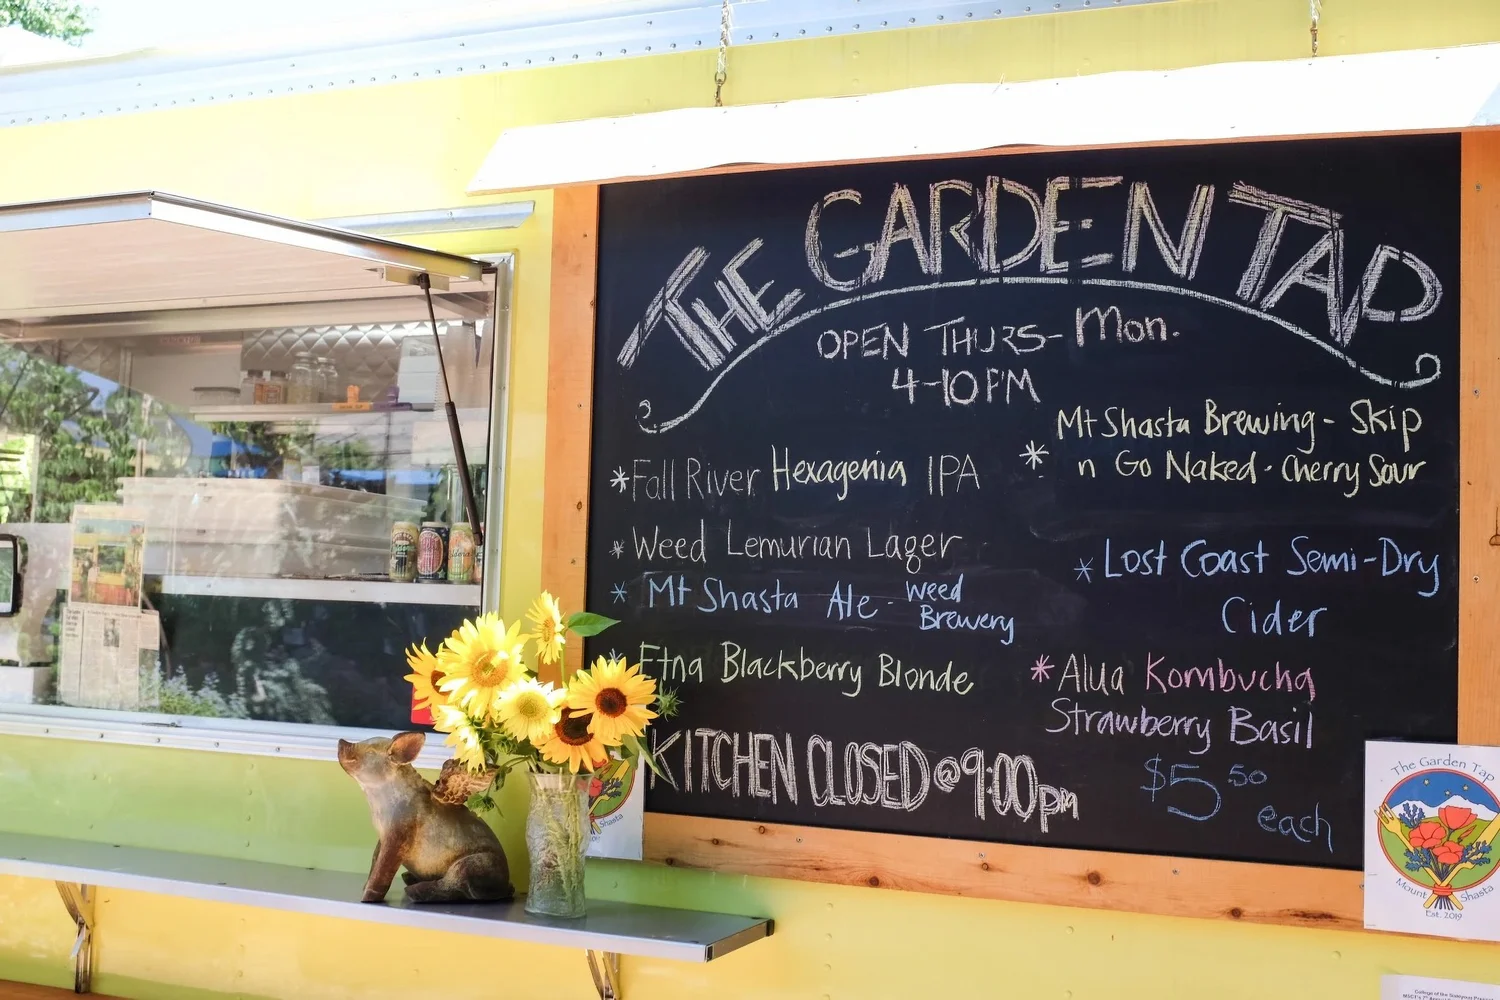 THE GARDEN TAP
OPEN THURS- Mon.
4-10PM
*Fall River Hexagenia IPA
* Weed Lemurian Lager
* Mt Shasta Ale - Weed
Brewery
* Etna Blackberry Blonde
KITCHEN CLOSED @ 9:00pm
Mt Shasta Brewing - Skip
* n Go Naked - Cherry Sour
* Lost Coast Semi-Dry
Cider
* Alua Kombucha
Strawberry Basil
$5 50
each
The Garden Tap
Mount Shasta
Est. 2019
Shasta